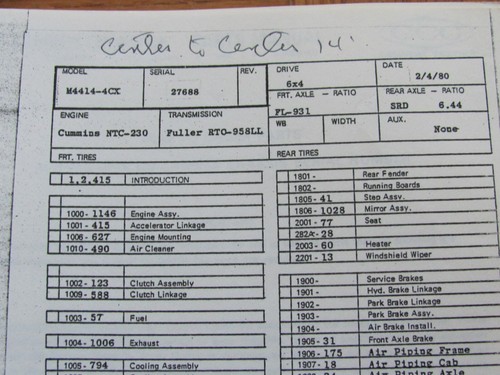 Center to Center 14'
MODEL SERIAL REV. DRIVE DATE
M4414-4CX 27688 6x4 2/4/80
FRT. AXLE - RATIO REAR AXLE - RATIO
FL-931 SRD 6.44
ENGINE TRANSMISSION WB WIDTH AUX.
Cummins NTC-230 Fuller RTO-958LL None
FRT. TIRES REAR TIRES
1,2,415 INTRODUCTION
1000-1146 Engine Assy.
1001-415 Accelerator Linkage
1006-627 Engine Mounting
1010-490 Air Cleaner
1002-123 Clutch Assembly
1009-588 Clutch Linkage
1003-57 Fuel
1004-1006 Exhaust
1005-794 Cooling Assembly
1801- Rear Fender
1802- Running Boards
1805-41 Step Assy.
1806-1028 Mirror Assy.
2001-77 Seat
282A-28
2003-60 Heater
2201-13 Windshield Wiper
1900- Service Brakes
1901- Hyd. Brake Linkage
1902- Park Brake Linkage
1903- Park Brake Assy.
1904- Air Brake Install.
1905-31 Front Axle Brake
1906-175 Air Piping Frame
1907-18 Air Piping Cab
Air Piping Axle